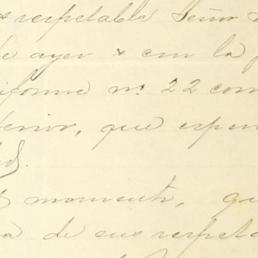 respetable Señor
de ayer x con la
informe nº 22 com
terior, que espera
momento, qu
a de sus respeta